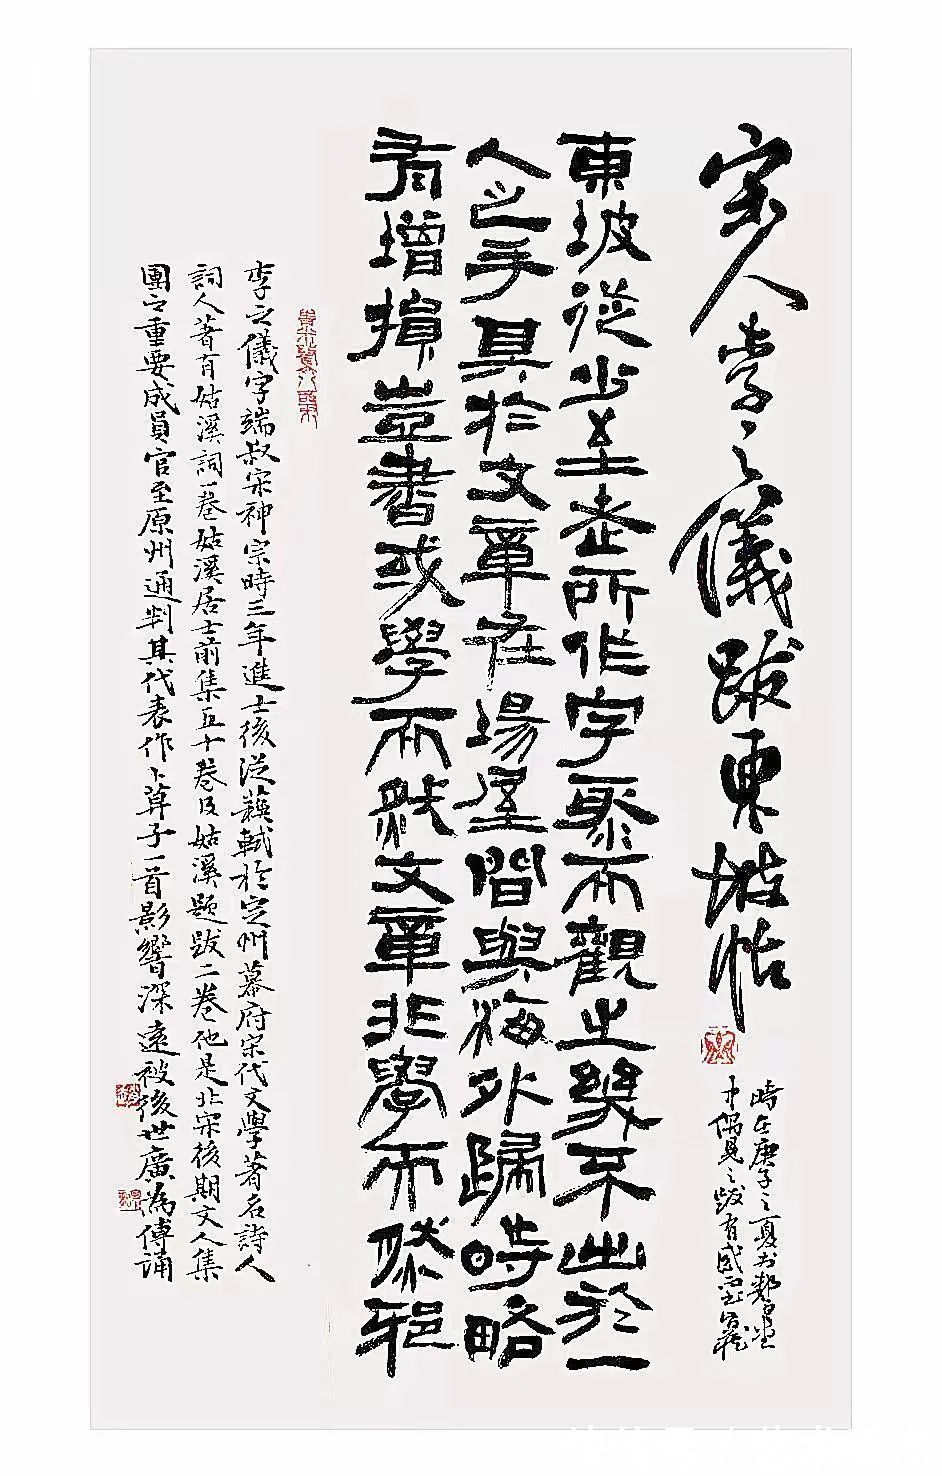 宋人李之儀跋東坡帖
時在庚子之夏
中偶見之跋有感而
東坡從少至老所作字聚而觀之幾不出於一
人之手其於文章在場屋間與海外歸時略
有增損豈書或學而然文章非學而然邪
李之儀字端叔宋神宗時三年進士後從蘇軾於定州幕府宋代文學著名詩人
詞人著有姑溪詞一卷姑溪居士前集五十卷及姑溪題跋二卷他是北宋後期文人集
團之重要成員官至原州通判其代表作卜算子一首影響深遠被後世廣為傳誦